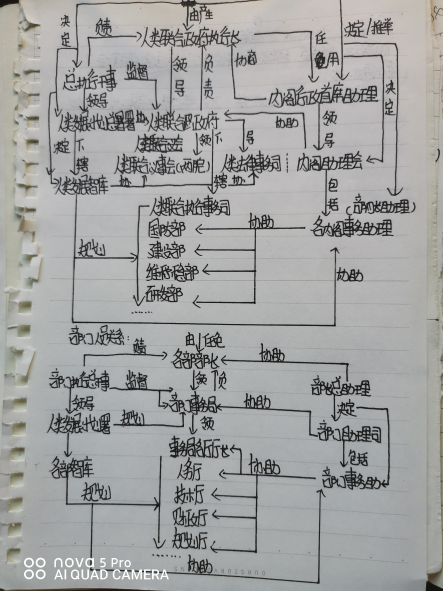 由产生
决定
负
人类联合政府执行长
任免
决定/推举
总执行干事
监督
领导
负责
协商
任用
决定
内阁行政首席助理
领导
人类发展规划署
人类联合政府
协助
领导
决定
下辖
人类联合议事会(两院)
人类法律事务司
内阁助理会
人类发展智库
协
下辖
协
包括
人类联合执行事务司
(部门总助理)
国防部
协助
各内阁事务助理
建设部
规划
维和稳部
协助
研技部
……
部门人员关系:
负
由任免
各部部长
协助
部门执行干事
监督
领
负
部长总助理
领导
部门事务局
协助
决定
人类发展规划署
规划
领
部门助理司
事务局各厅厅长
包括
各部智库
人务厅
协助
部门事务助
技术厅
规划
财政厅
规划厅
……
协助
nova 5 Pro
AI QUAD CAMERA